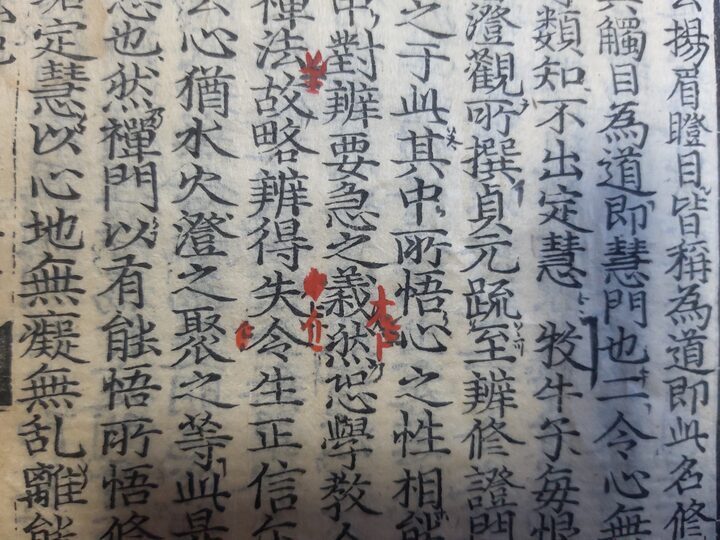 揚眉瞪目皆稱為道即此名修
觸目為道即慧門也二令心無
類知不出定慧 牧牛子毎恨
澄觀所撰貞元䟽至辨修證門
之于此其中所悟心之性相能
中對辨要急之義然恐學教人
禪法故略辨得失令生正信
心猶水火澄之聚之等此是
也然禪門以有能悟所悟修
定慧以心地無癡無乱離能